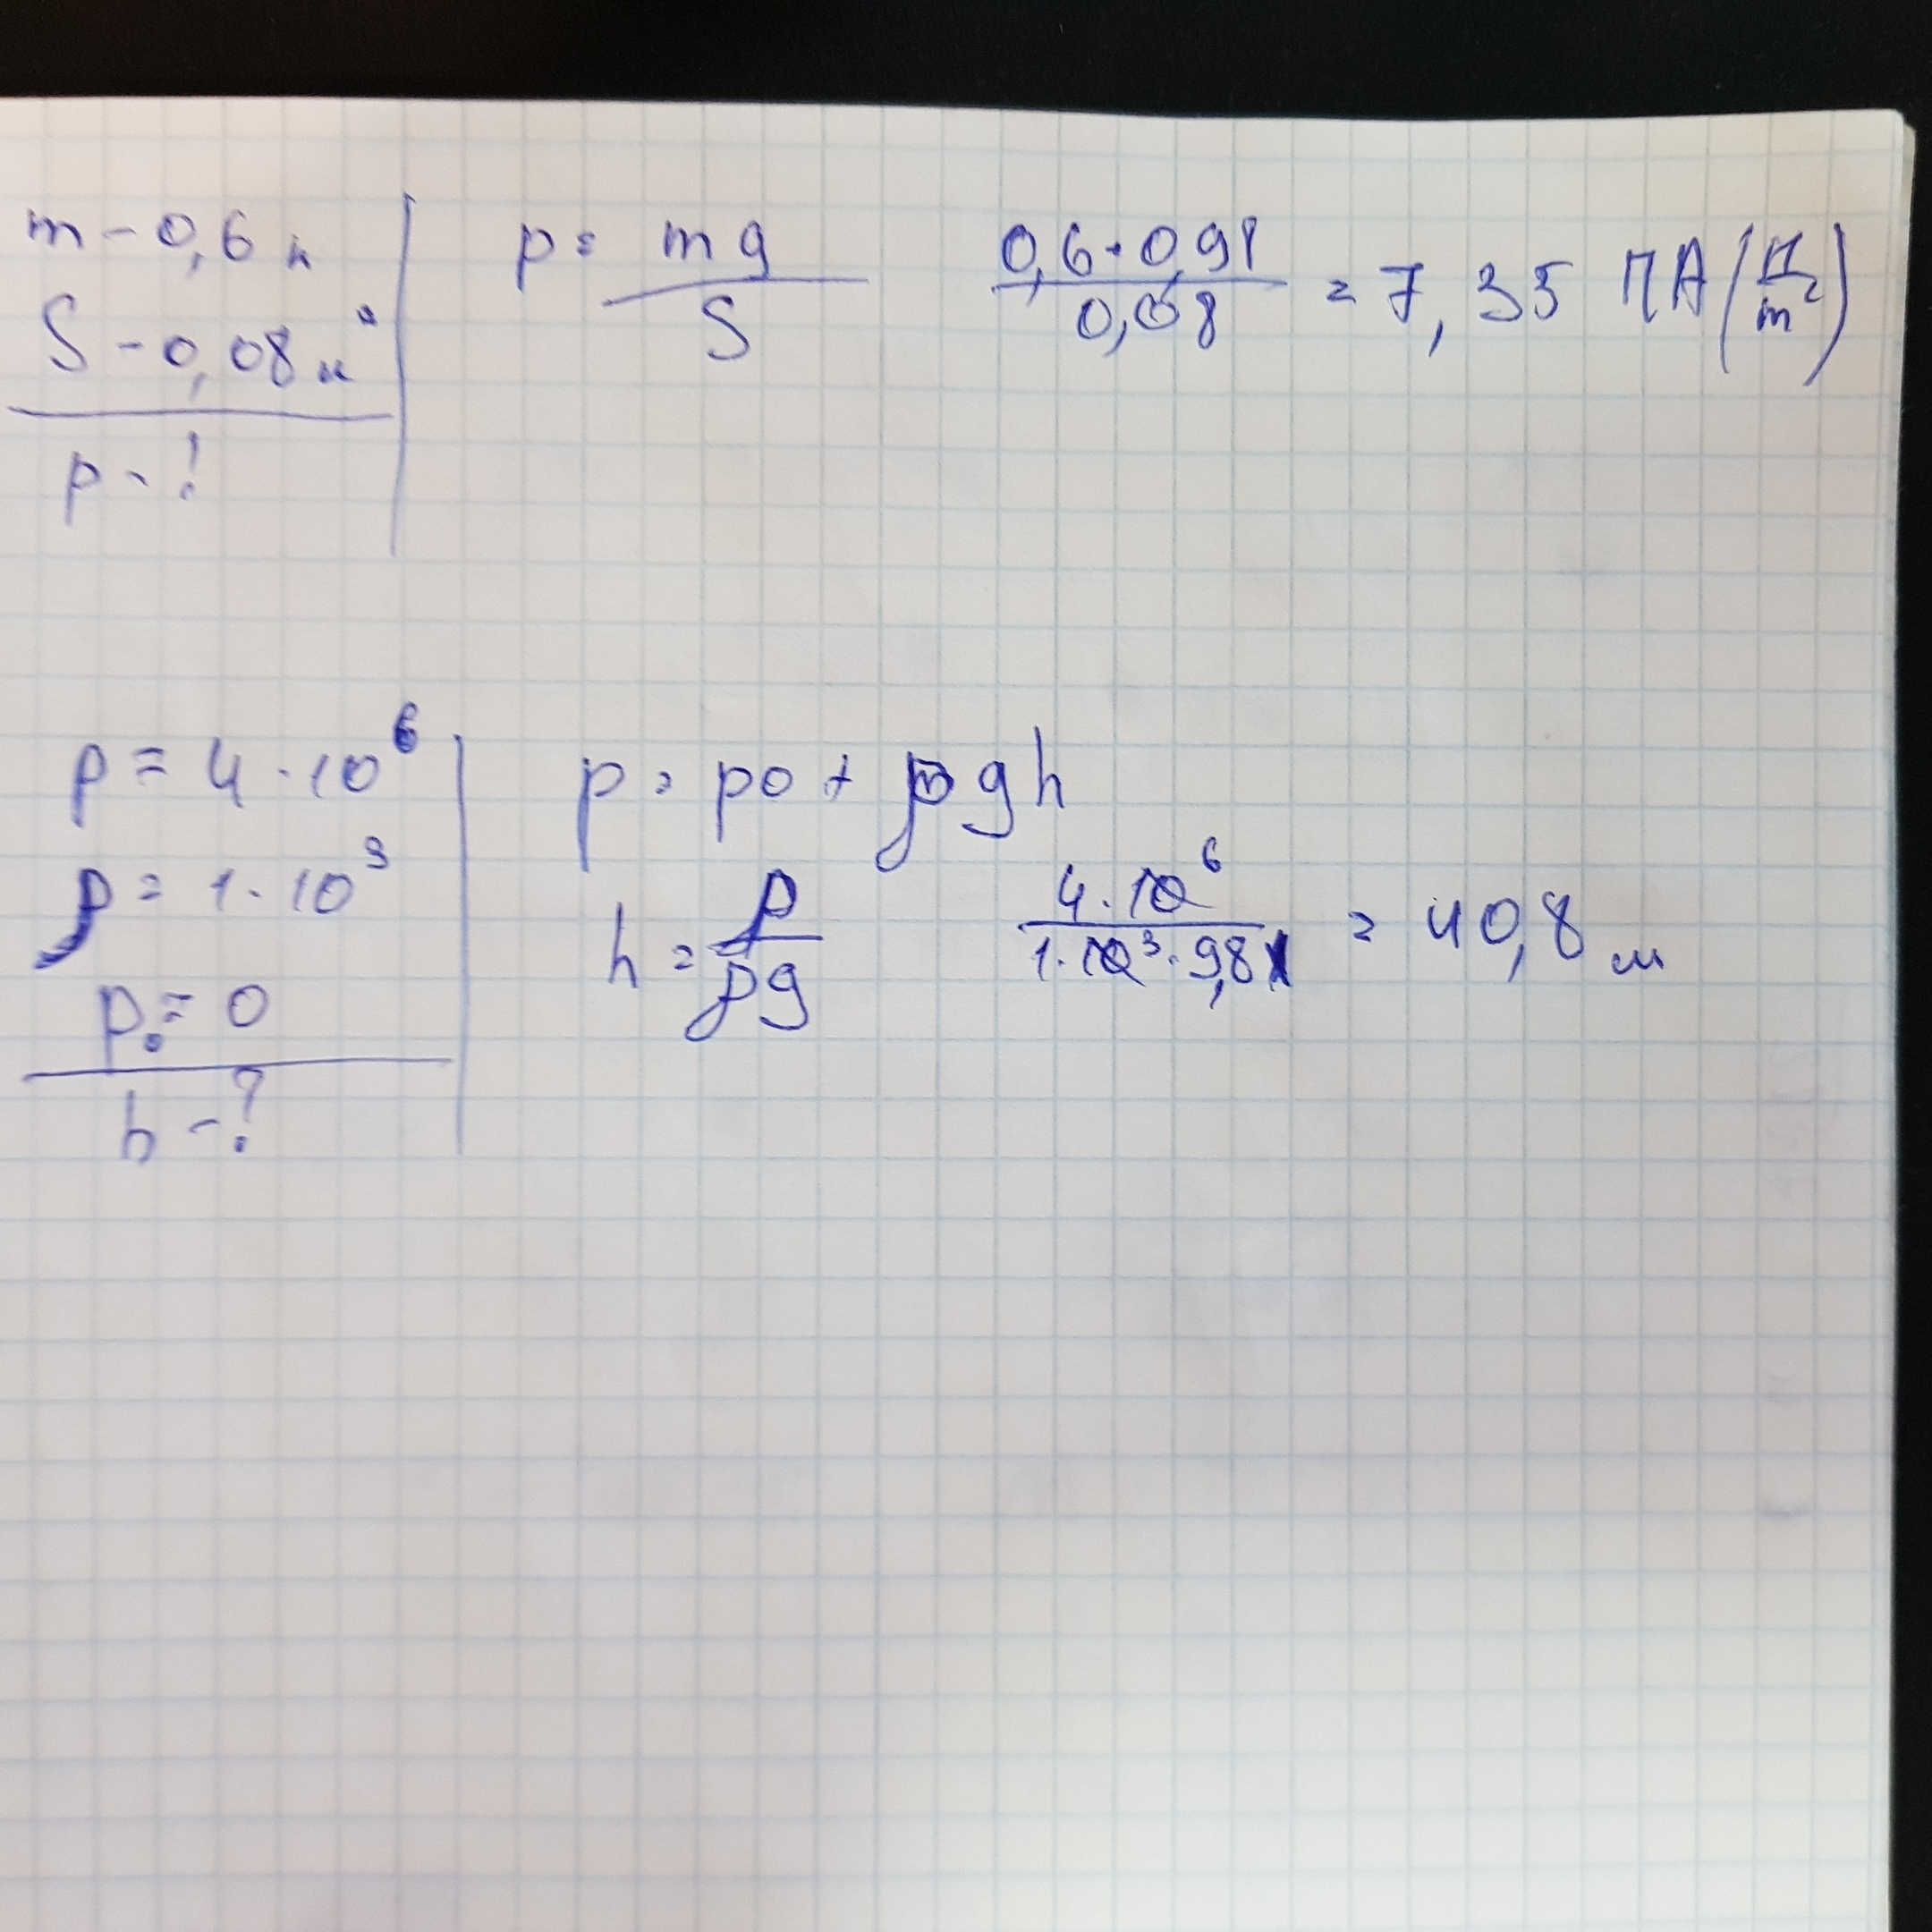 m - 0,6 н
S - 0,08 м²
p - ?
p = mg / S
0,6 · 0,98 / 0,08 = 7,35 ПА (Н / m²)
p = 4 · 10⁶
ρ = 1 · 10³
p₀ = 0
h - ?
p = p0 + ρgh
h = p / ρg
4 · 10⁶ / 1 · 10³ · 9,8 = 40,8 м